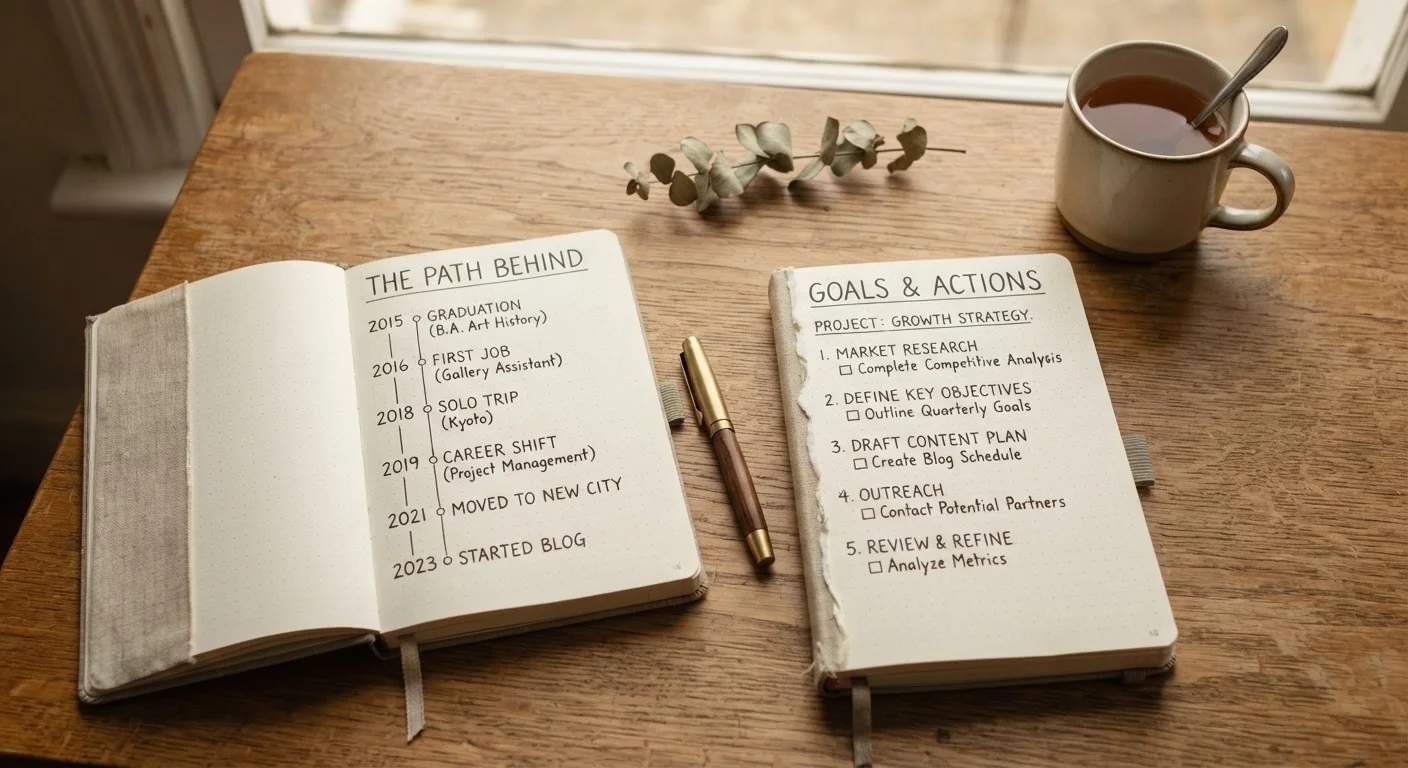 THE PATH BEHIND
2015 GRADUATION
(B.A. Art History)
2016 FIRST JOB
(Gallery Assistant)
2018 SOLO TRIP
(Kyoto)
2019 CAREER SHIFT
(Project Management)
2021 MOVED TO NEW CITY
2023 STARTED BLOG
GOALS & ACTIONS
PROJECT: GROWTH STRATEGY.
1. MARKET RESEARCH
☐ Complete Competitive Analysis
2. DEFINE KEY OBJECTIVES
☐ Outline Quarterly Goals
3. DRAFT CONTENT PLAN
☐ Create Blog Schedule
4. OUTREACH
☐ Contact Potential Partners
5. REVIEW & REFINE
☐ Analyze Metrics